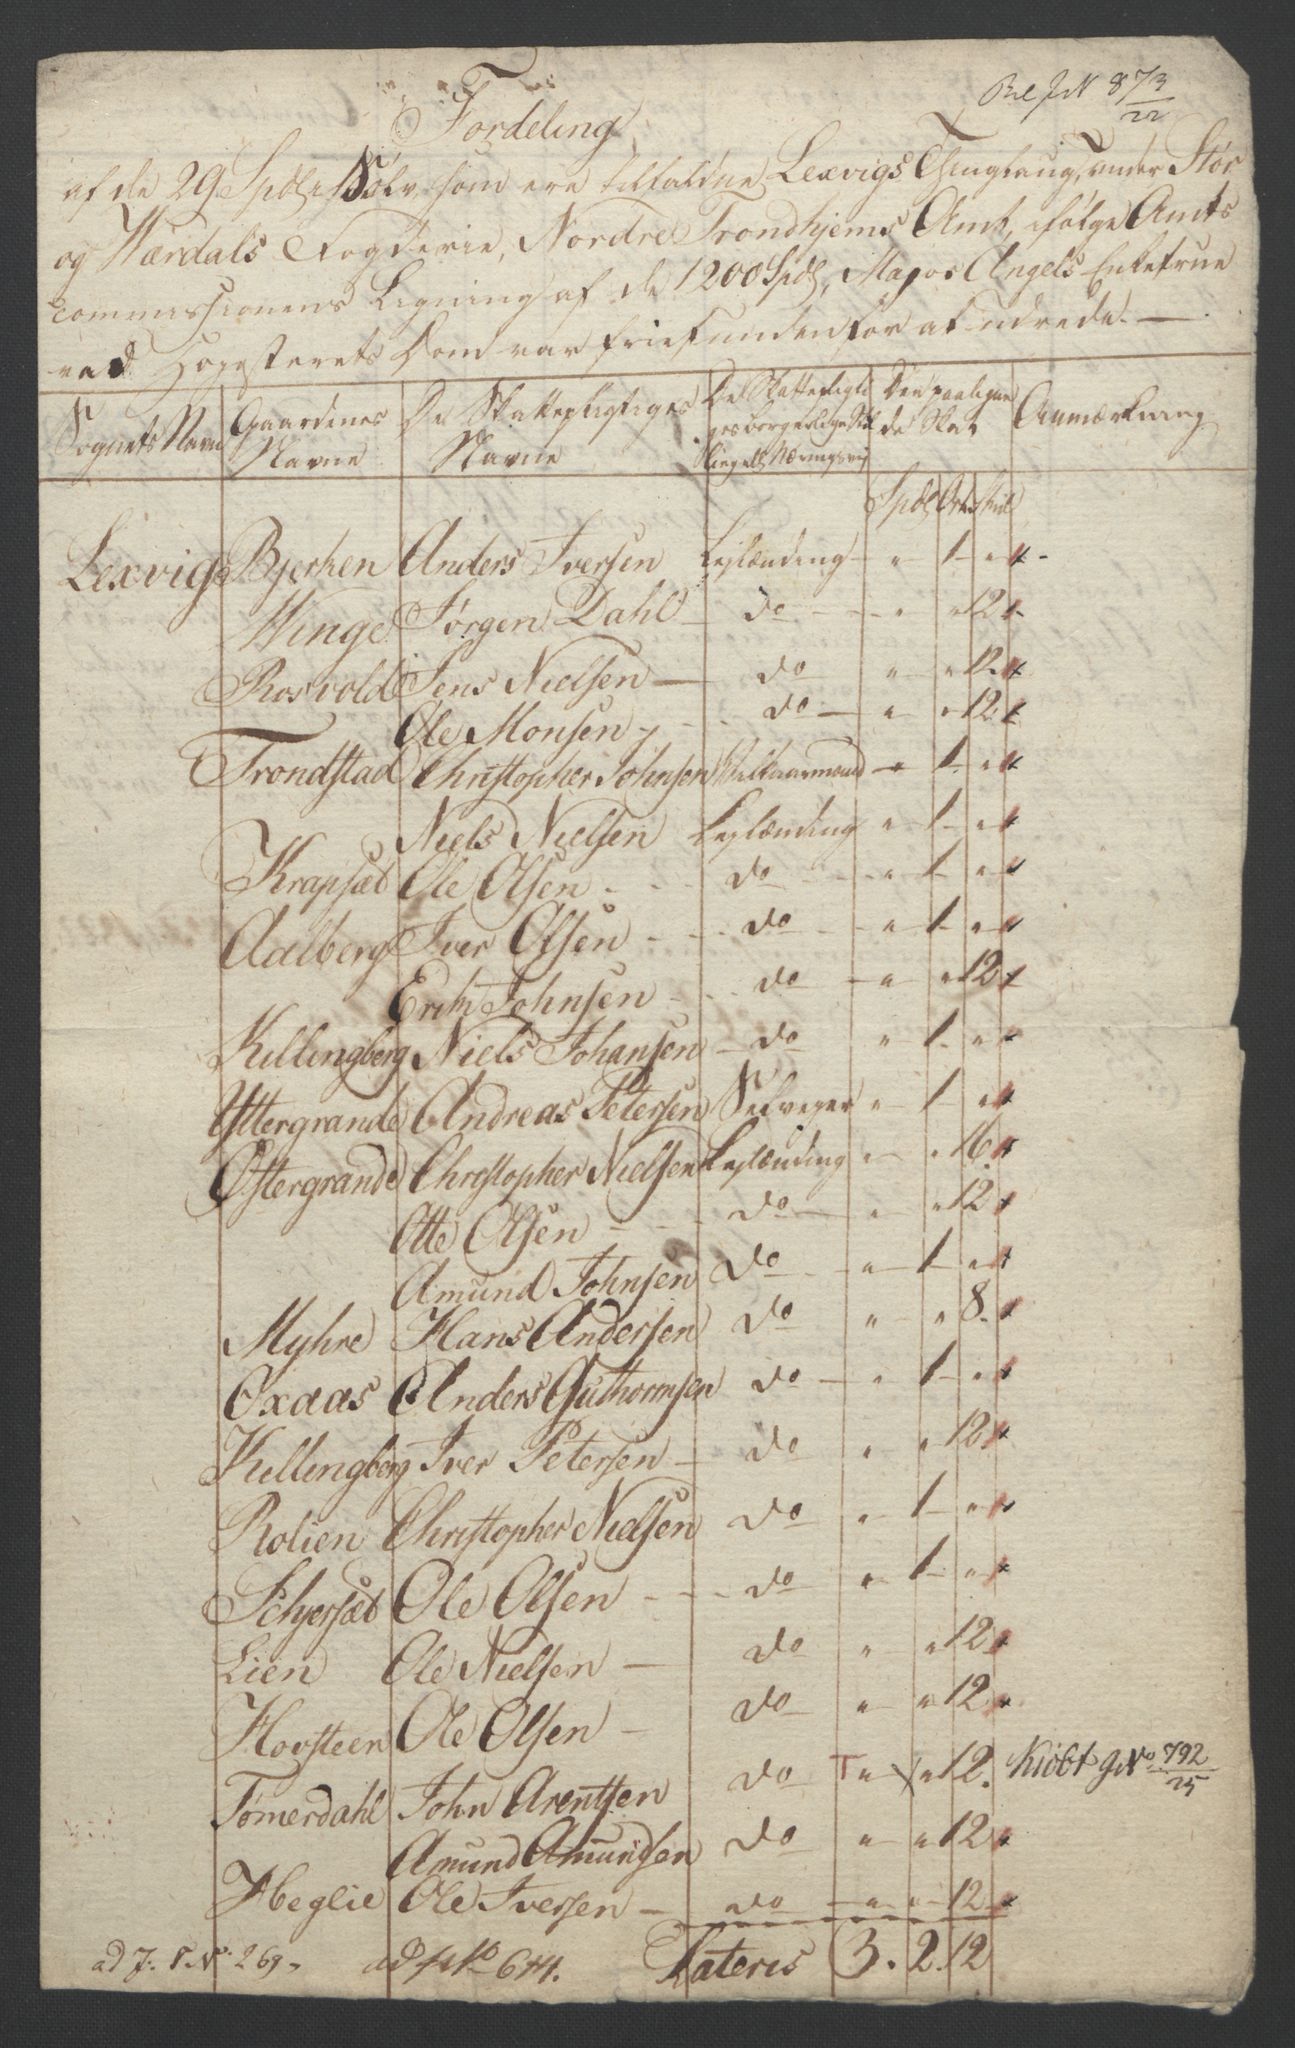 Fordeling
873/22
af de 29 Spdlr Sølv som ere tilfaldne Lexvigs Thinglaug, under Stør
og Værdals Fogderie, Nordre Trondhjems Amt, ifølge Amts
commissionens Ligning af de 1200 Spdlr, Major Angels Enkefrue
ved Højesterets Dom var friefunden for at udrede.
Sognets Navn Gaardenes Navne De Skattepligtiges Navne De Skattepligtiges borgerlige Stilling eller Næringsvej Den paalignede Skat Anmærkning
Spdlr Ort Skil
Lexvigs Bjerken Anders Iversen Lejlænding " 1 "
Winge Jørgen Dahl do " " 12
Rosvold Jens Nielsen do " " 12
Ole Monsen do " " 12
Trondstad Christopher Johnsen Vilkaarmand " 1 "
Niels Nielsen Lejlænding " 1 "
Krapsæt Ole Olsen do " 1 "
Aalberg Iver Olsen do " 1 "
Erik Johnsen do " " 12
Killingberg Niels Johansen do " 1 "
Yttergrande Andreas Petersen Selvejer " 1 "
Østergrande Christopher Nielsen Lejlænding " " 16
Otte Olsen do " " 12
Amund Johnsen do " 1 "
Myhre Hans Andersen do " " 8
Oxaas Anders Guthormsen do " 1 "
Killingberg Iver Petersen do " " 12
Rolien Christopher Nielsen do " 1 "
Schjersæt Ole Olsen do " 1 "
Lien Ole Nielsen do " " 12
Hovsteen Ole Olsen do " " 12
Tømerdahl John Arentsen do " " 12. Kiöbt 792/25
Amund Amundsen do " " 12
Heglie Ole Iversen do " " 12
Lateris 3. 2. 12
ad J. No 269